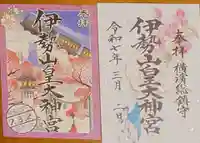 奉拝
伊勢山皇大神宮
奉拝 横濱総鎮守
伊勢山皇大神宮
令和七年 三月 二日